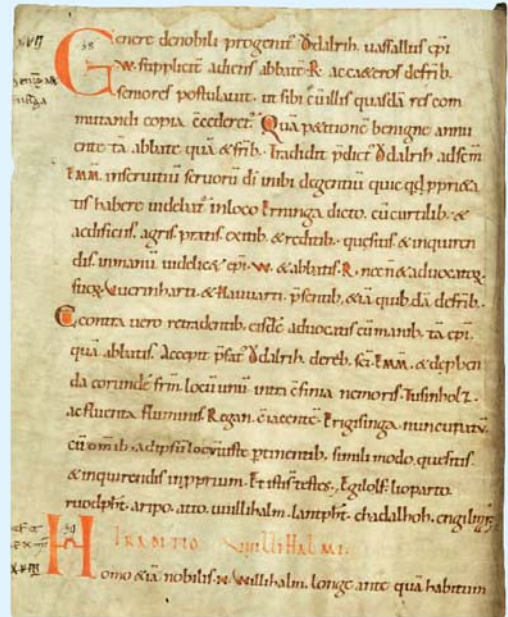 Genere denobili progenit᷒ Ǒdalrih. uassallus ep̄i
.w. supplicit͛ adiens abbatē .R. ac cæteros defrīb.
seniores postulauit. ut sibi cū illis quasdā res com
mutandi copia c̄cederet᷒. Quā petitionē benigne annu
ente tā abbate quā & frīb. Tradidit p̄dict᷒ Ǒdalrih ad sc̄m
Emm̄. inseruitiū seruorū dī inibi degentiū quicqd̄ p̄prieta
tis habere uidebat᷒ inloco Erninga dicto. cū curtilib. &
aedificiis. agris pratis exitib. & reditib. quesitis & inquiren
dis inmanū uidelic& ep̄i .w. & abbatis .R. necn̄ & aduocatoꝝ.
suoꝝ. Vuerinharti. & Hauuarti. p̄sentib. &iā quib. dā defrīb.
Econtra uero retradentib. eisdē aduocatis cū manib. tā ep̄i.
quā abbatis. Accepit p̄fat᷒ Ǒdalrih. dereb. sc̄i Emm̄. & dep̄ben
da eorundē fr̄m. locū unū intra c̄finia nemoris. Tusinholz.
ac fluenta fluminis Regan. c̄iacentē. Frigisinga nuncupatū.
cū om̄ib. adipsū locū iuste ptinentib. simili modo quesitis
& inquirendis inp̄prium. Et isti s̄ testes. Egilolf. lioparto.
ruodp̄ht. aripo. atto. uuillihalm. lantp̄ht. chadalhoh. engilm̄r.
TRADITIO VVILLIHALMI.
Homo &iā nobilis .n. Willihalm. longe ante quā habitum